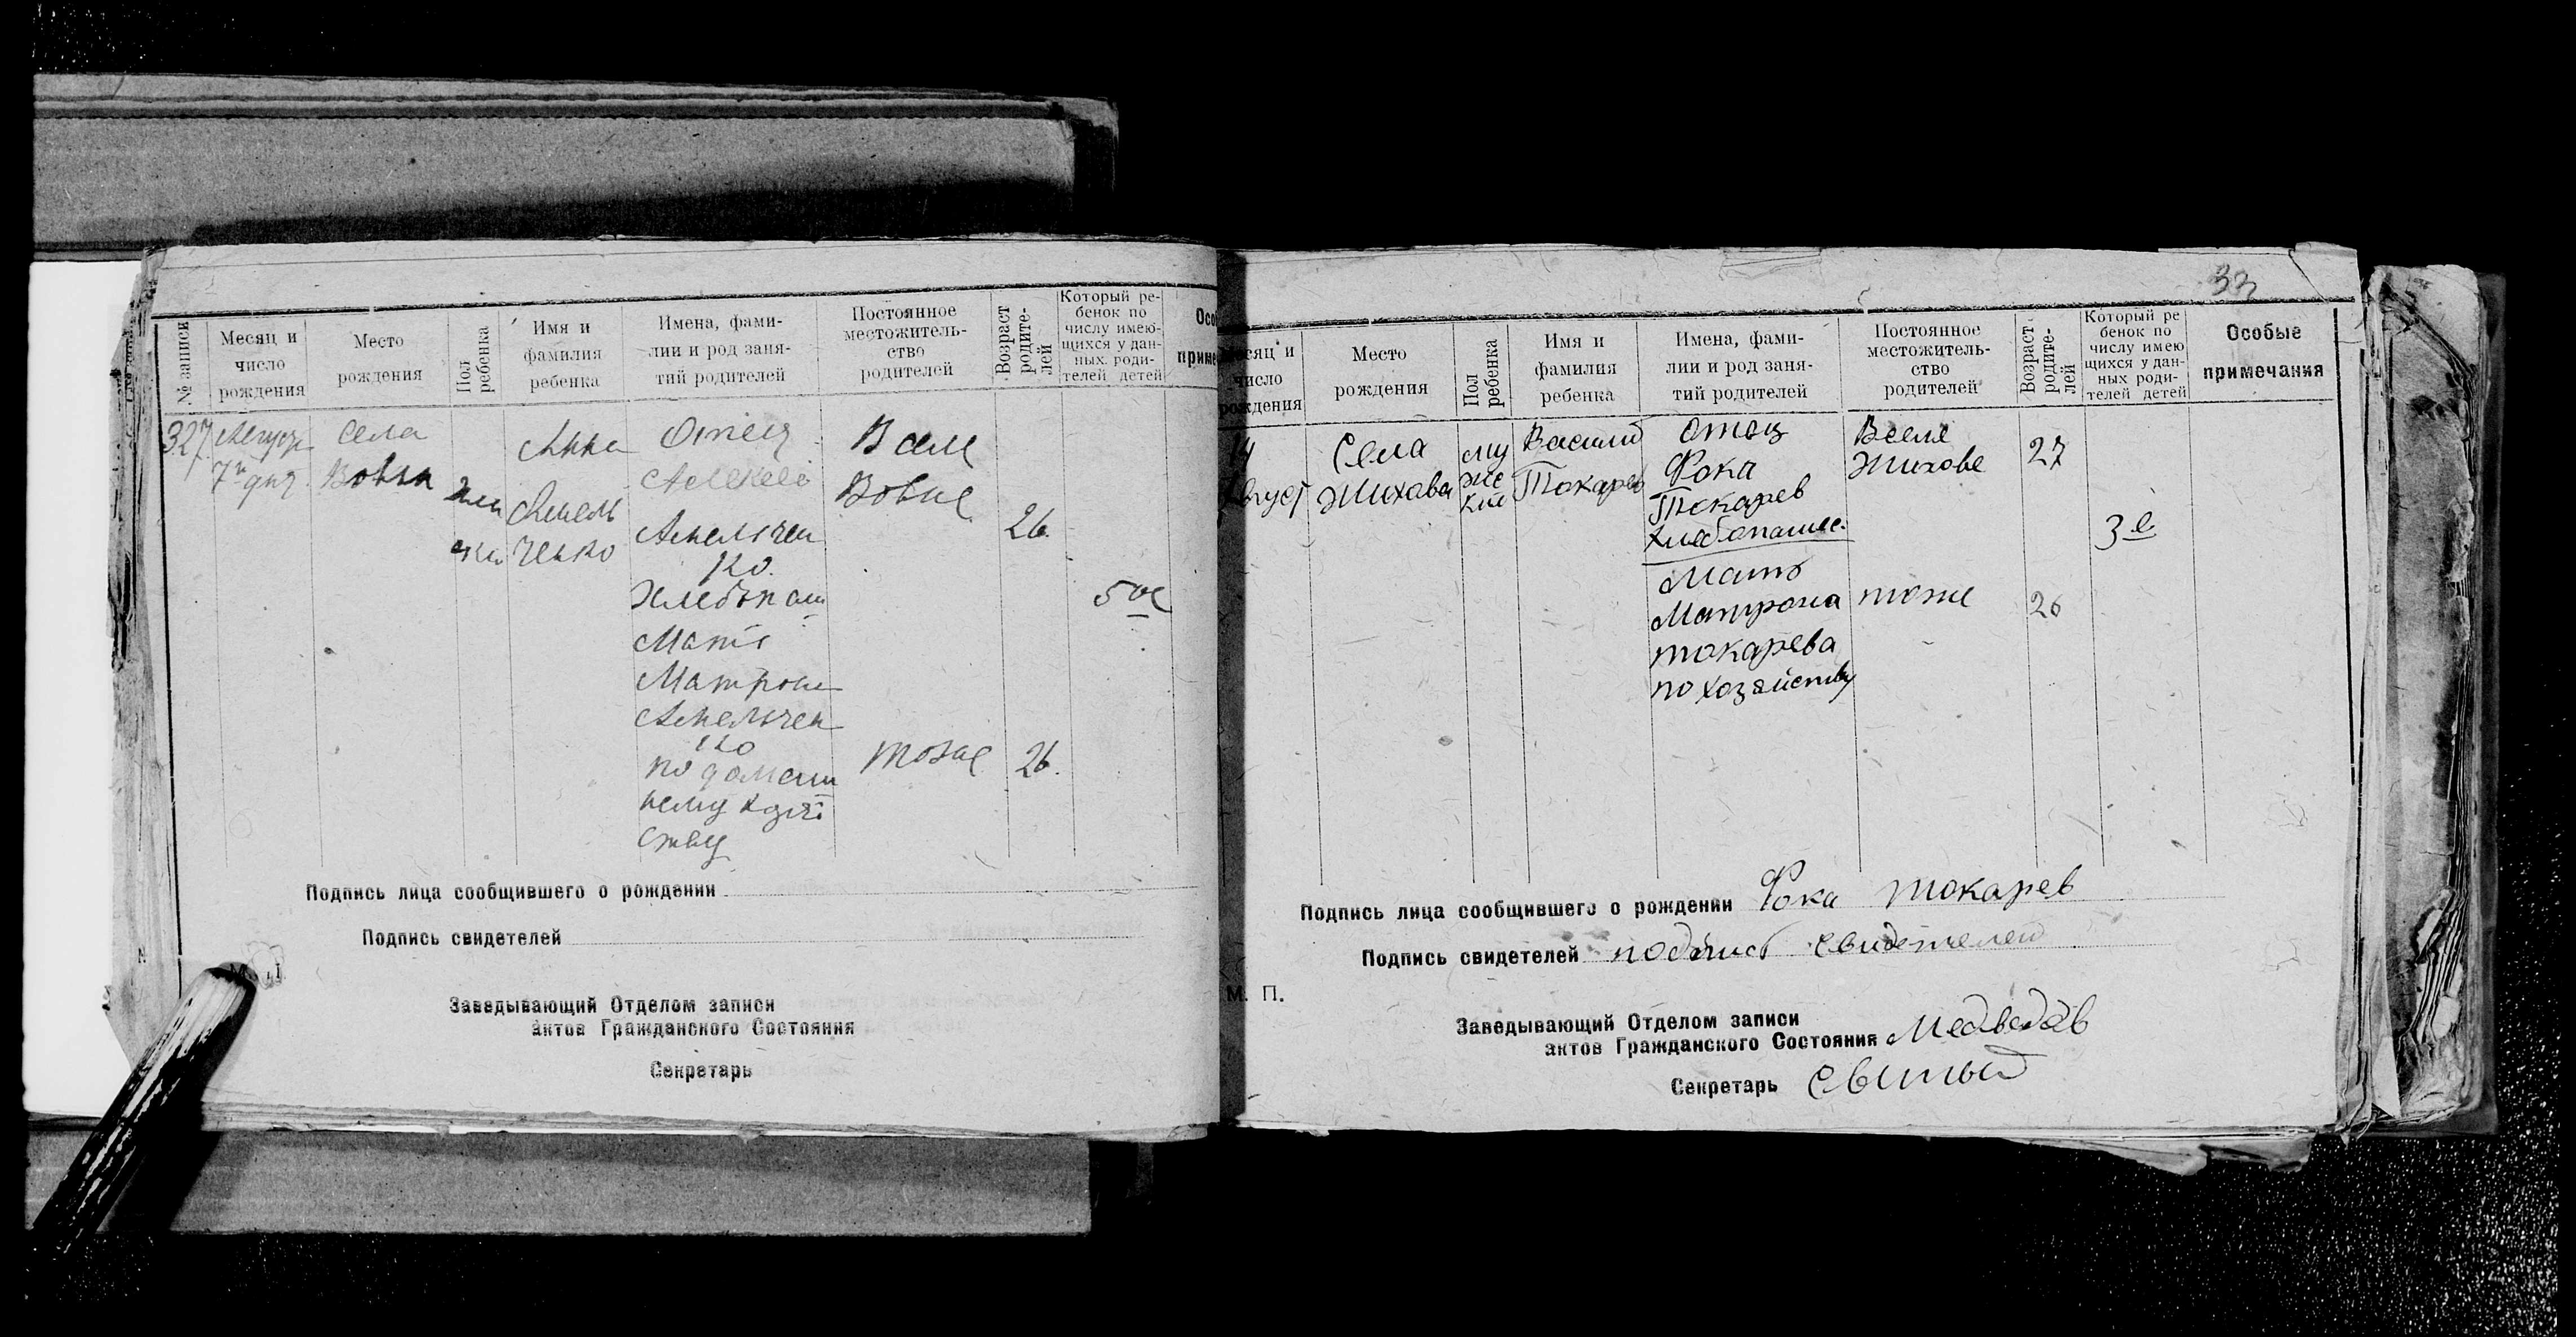 № записи
Месяц и
число
рождения
Место
рождения
Пол
ребенка
Имя и
фамилия
ребенка
Имена, фами-
лии и род заня-
тий родителей
Постоянное
местожитель-
ство
родителей
Возраст
родите-
лей
Который ре-
бенок по
числу имею-
щихся у дан-
ных роди-
телей детей
327
7го дня
села
Анна
Амель
ченко
Отец
Алексей
Амельчен
ко
Хлебопаш
Мать
Матрона
Амельчен
ко
по домаш
нему
ству
В селе
тоже
26
26.
5ое
Подпись лица сообщившего о рождении
Подпись свидетелей
Заведывающий Отделом записи
актов Гражданского Состояния
Секретарь
33
число
рождения
Место
рождения
Пол
ребенка
Имя и
фамилия
ребенка
Имена, фами-
лии и род заня-
тий родителей
Постоянное
местожитель-
ство
родителей
Возраст
родите-
лей
Который ре
бенок по
числу имею
щихся у дан-
ных роди-
телей детей
Особые
примечания
14
Август
Села
Жихова
му
жс
кий
Василий
Токарев
отец
Фока
Токарев
хлебопашес.
Мать
Матрона
токарева
по хозяйству
Вселе
Жихове
тоже
27
26
3е
Подпись лица сообщившего о рождении Фока токарев
Подпись свидетелей подпись свидетелей
М. П.
Заведывающий Отделом записи
актов Гражданского Состояния Медведев
Секретарь